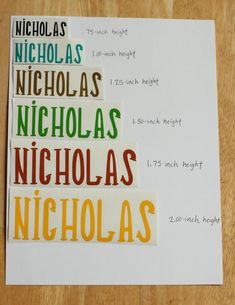 NiCHOLAS .75-inch height
NiCHOLAS 1.00-inch height
NiCHOLAS 1.25-inch height
NiCHOLAS 1.50-inch height
NiCHOLAS 1.75-inch height
NiCHOLAS 2.00-inch height